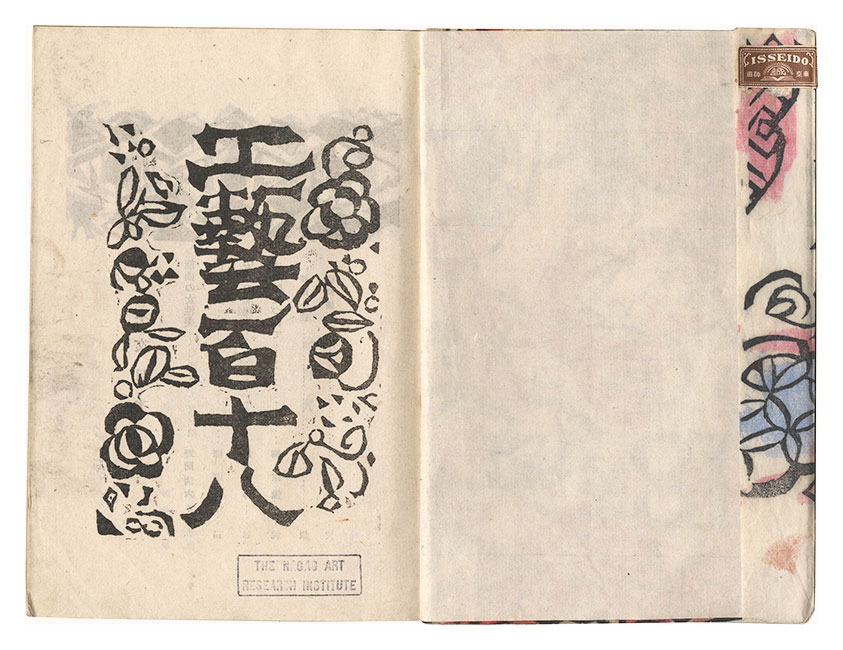 工藝百十八
THE NAGAO ART
RESEARCH INSTITUTE
ISSEIDO